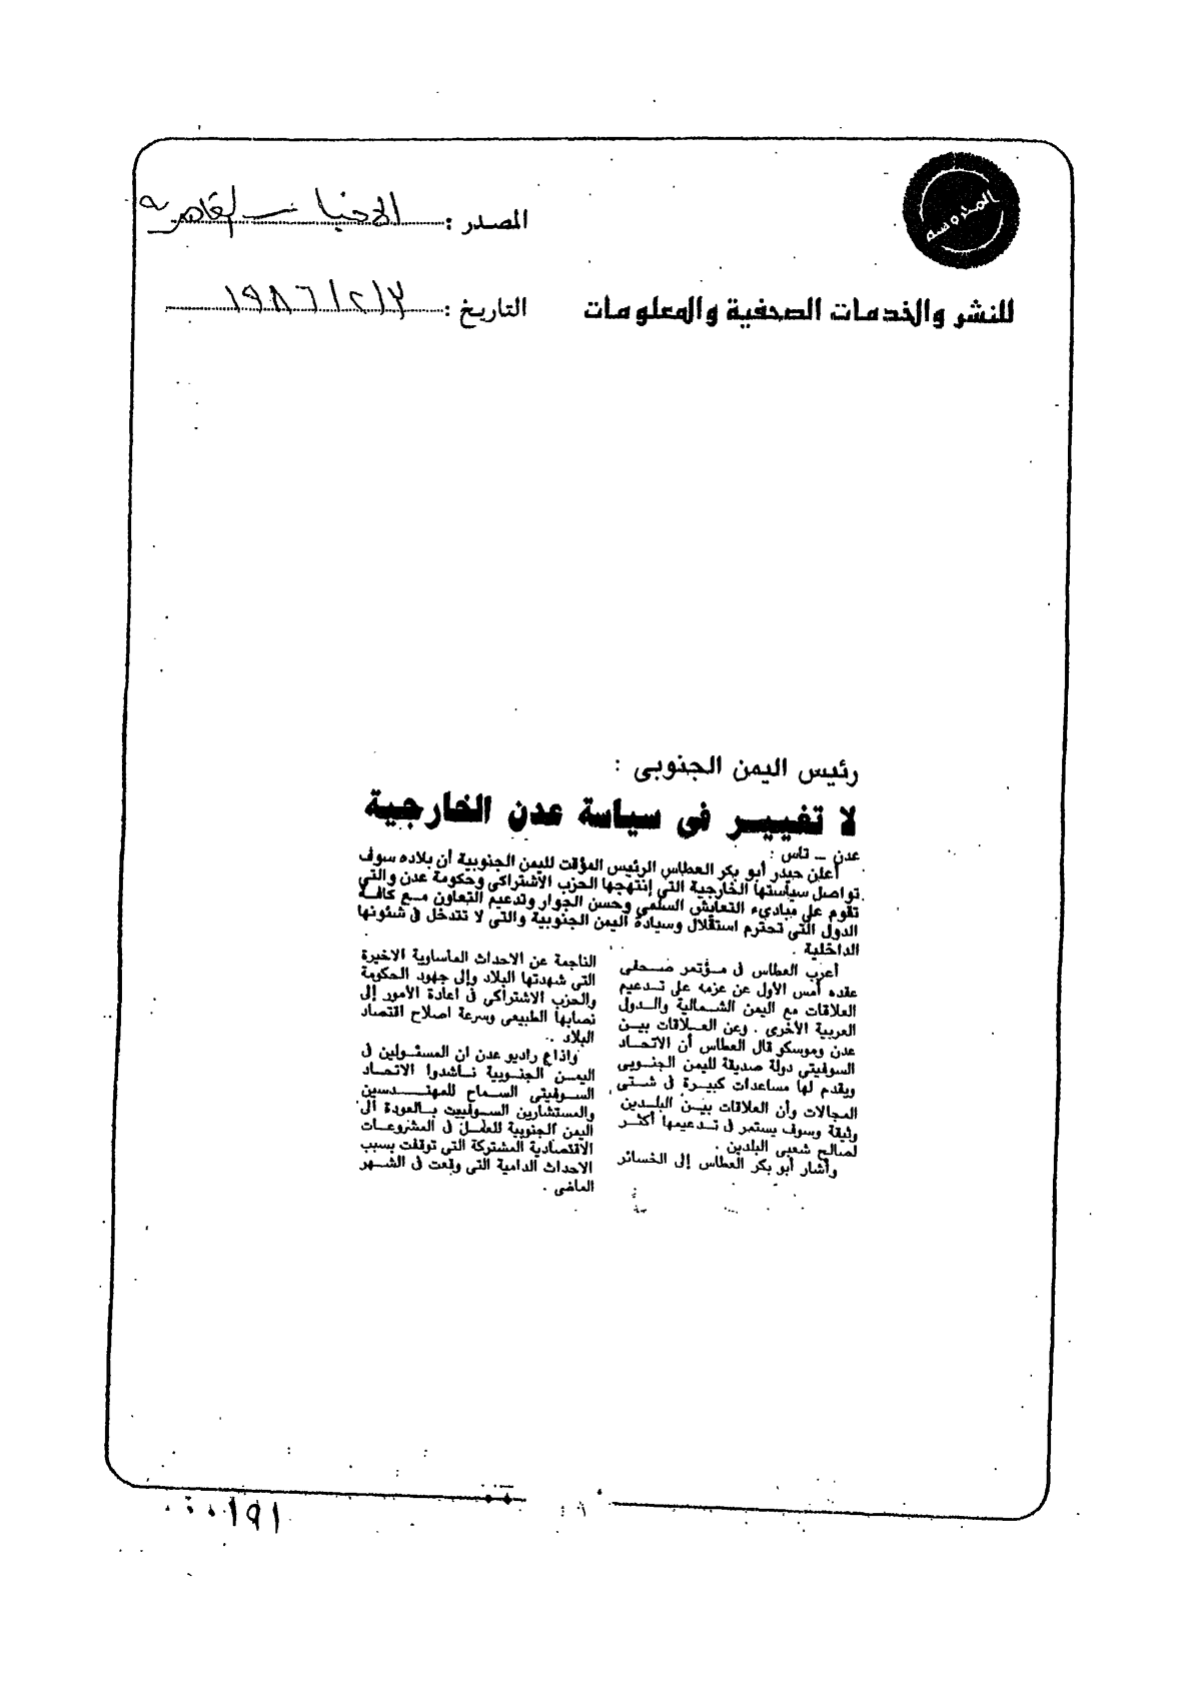 المحروسة
المصدر : الاخبار القاهرية
للنشر والخدمات الصحفية والمعلومات
التاريخ : ١٩٨٦/٢/٢
رئيس اليمن الجنوبى :
لا تغيير فى سياسة عدن الخارجية
عدن ــ تاس :
أعلن حيدر أبو بكر العطاس الرئيس المؤقت لليمن الجنوبية أن بلاده سوف
تواصل سياستها الخارجية التى إنتهجها الحزب الاشتراكى وحكومة عدن والتى
تقوم على مبادىء التعايش السلمى وحسن الجوار وتدعيم التعاون مع كافة
الدول التى تحترم استقلال وسيادة اليمن الجنوبية والتى لا تتدخل فى شئونها
الداخلية .
أعرب العطاس فى مؤتمر صحفى
عقده أمس الأول عن عزمه على تدعيم
العلاقات مع اليمن الشمالية والدول
العربية الأخرى . وعن العلاقات بين
عدن وموسكو قال العطاس أن الاتحاد
السوفيتى دولة صديقة لليمن الجنوبى
ويقدم لها مساعدات كبيرة فى شتى
المجالات وأن العلاقات بين البلدين
وثيقة وسوف يستمر فى تدعيمها أكثر
لصالح شعبى البلدين .
وأشار أبو بكر العطاس إلى الخسائر
الناجمة عن الاحداث المأساوية الاخيرة
التى شهدتها البلاد وإلى جهود الحكومة
والحزب الاشتراكى فى اعادة الأمور إلى
نصابها الطبيعى وسرعة اصلاح اقتصاد
البلاد ..
واذاع راديو عدن ان المسئولين فى
اليمن الجنوبية ناشدوا الاتحاد
السوفيتى السماح للمهندسين
والمستشارين السوفييت بالعودة الى
اليمن الجنوبية للعمل فى المشروعات
الاقتصادية المشتركة التى توقفت بسبب
الاحداث الدامية التى وقعت فى الشهر
الماضى .